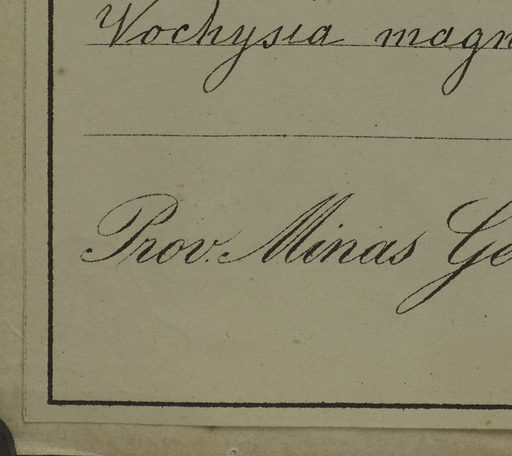 Vochysia magn
Prov. Minas Ge